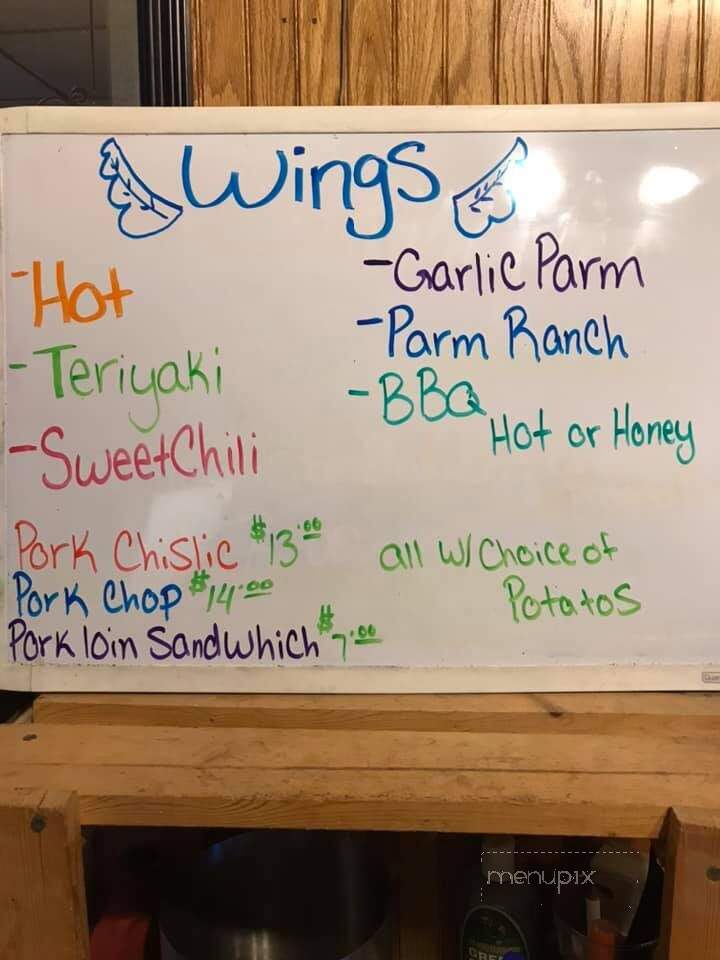 Wings
-Hot
-Teriyaki
-Sweet Chili
-Garlic Parm
-Parm Ranch
-BBQ
Hot or Honey
Pork Chislic $13.00
Pork Chop $14.00
Pork loin Sandwhich $7.00
all w/ Choice of
Potatos
menupix